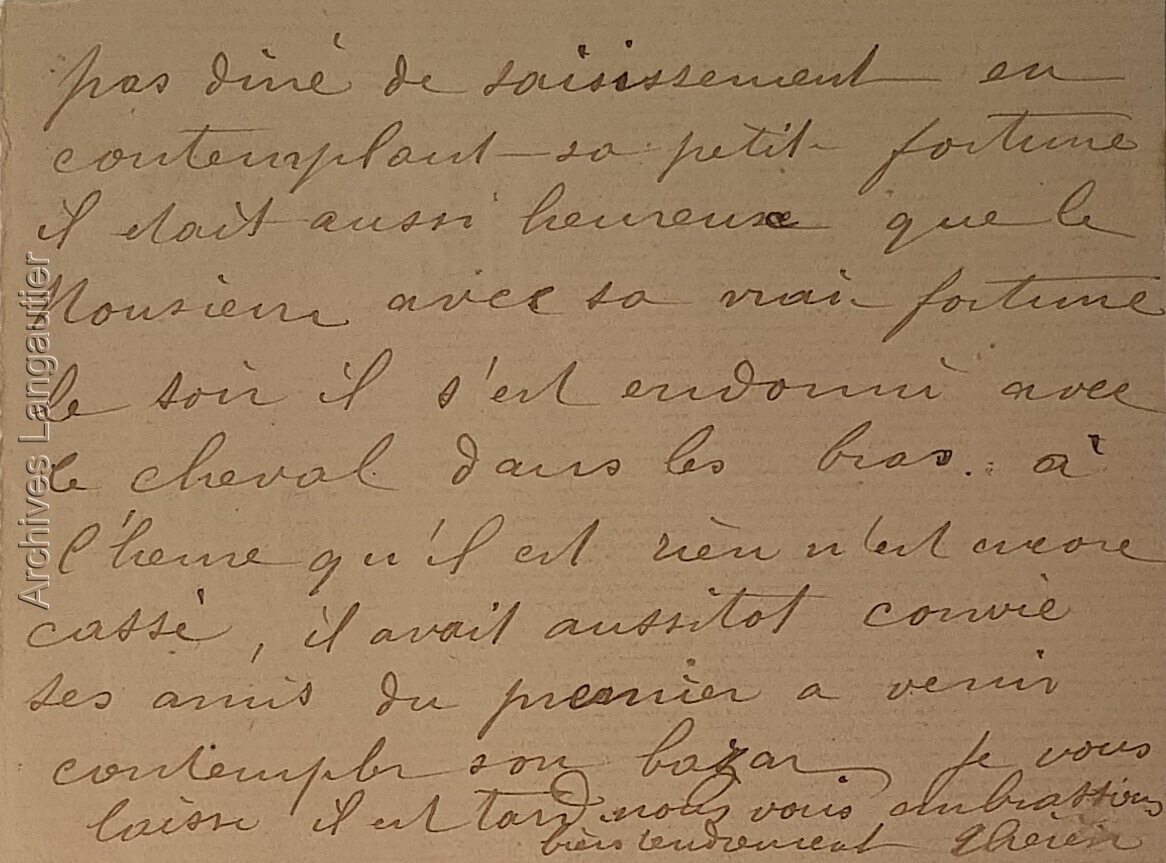 pas diné de saisissement en
contemplant sa petit fortune
il etait aussi heureuse que le
Monsieur avec sa vrai fortune
le soir il s'est endormi avec
le cheval dans les bras. à
l'heure qu'il est rien n'est encore
cassé, il avait aussitot convié
ses amis du premier a venir
contempler son bazar. Je vous
laisse il est tard nous vous embrassons
bien tendrement
Archives Langautier